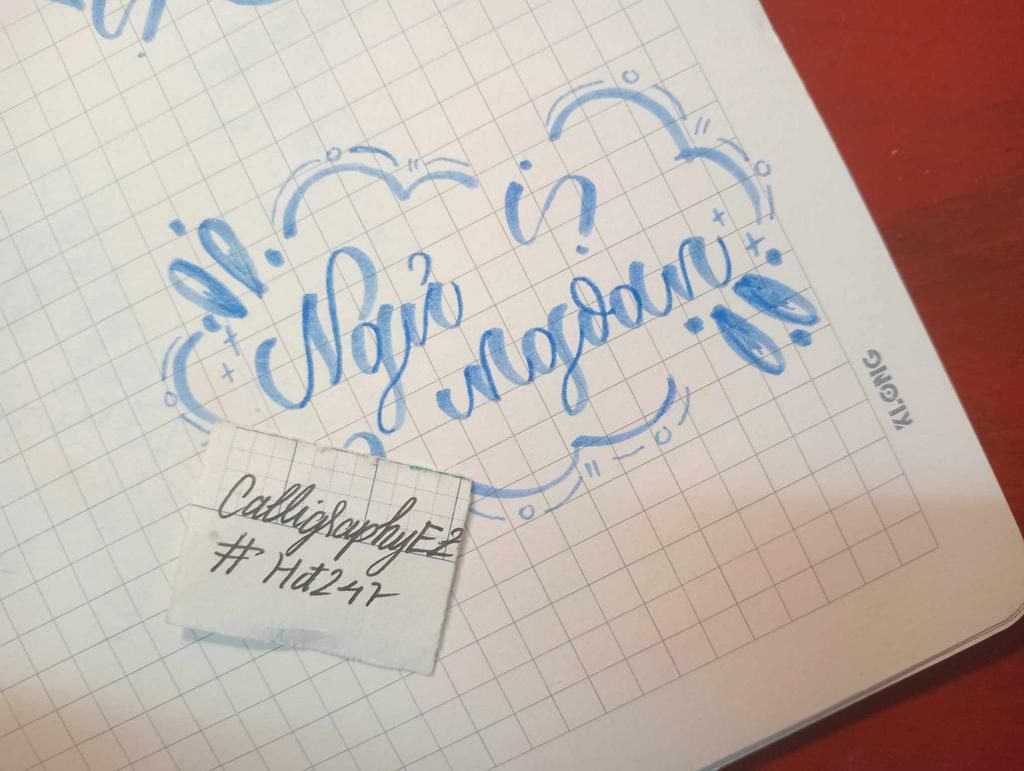 i?
Ngủ
ngoan
KLONG
CalligraphyEZ
# Hđ247